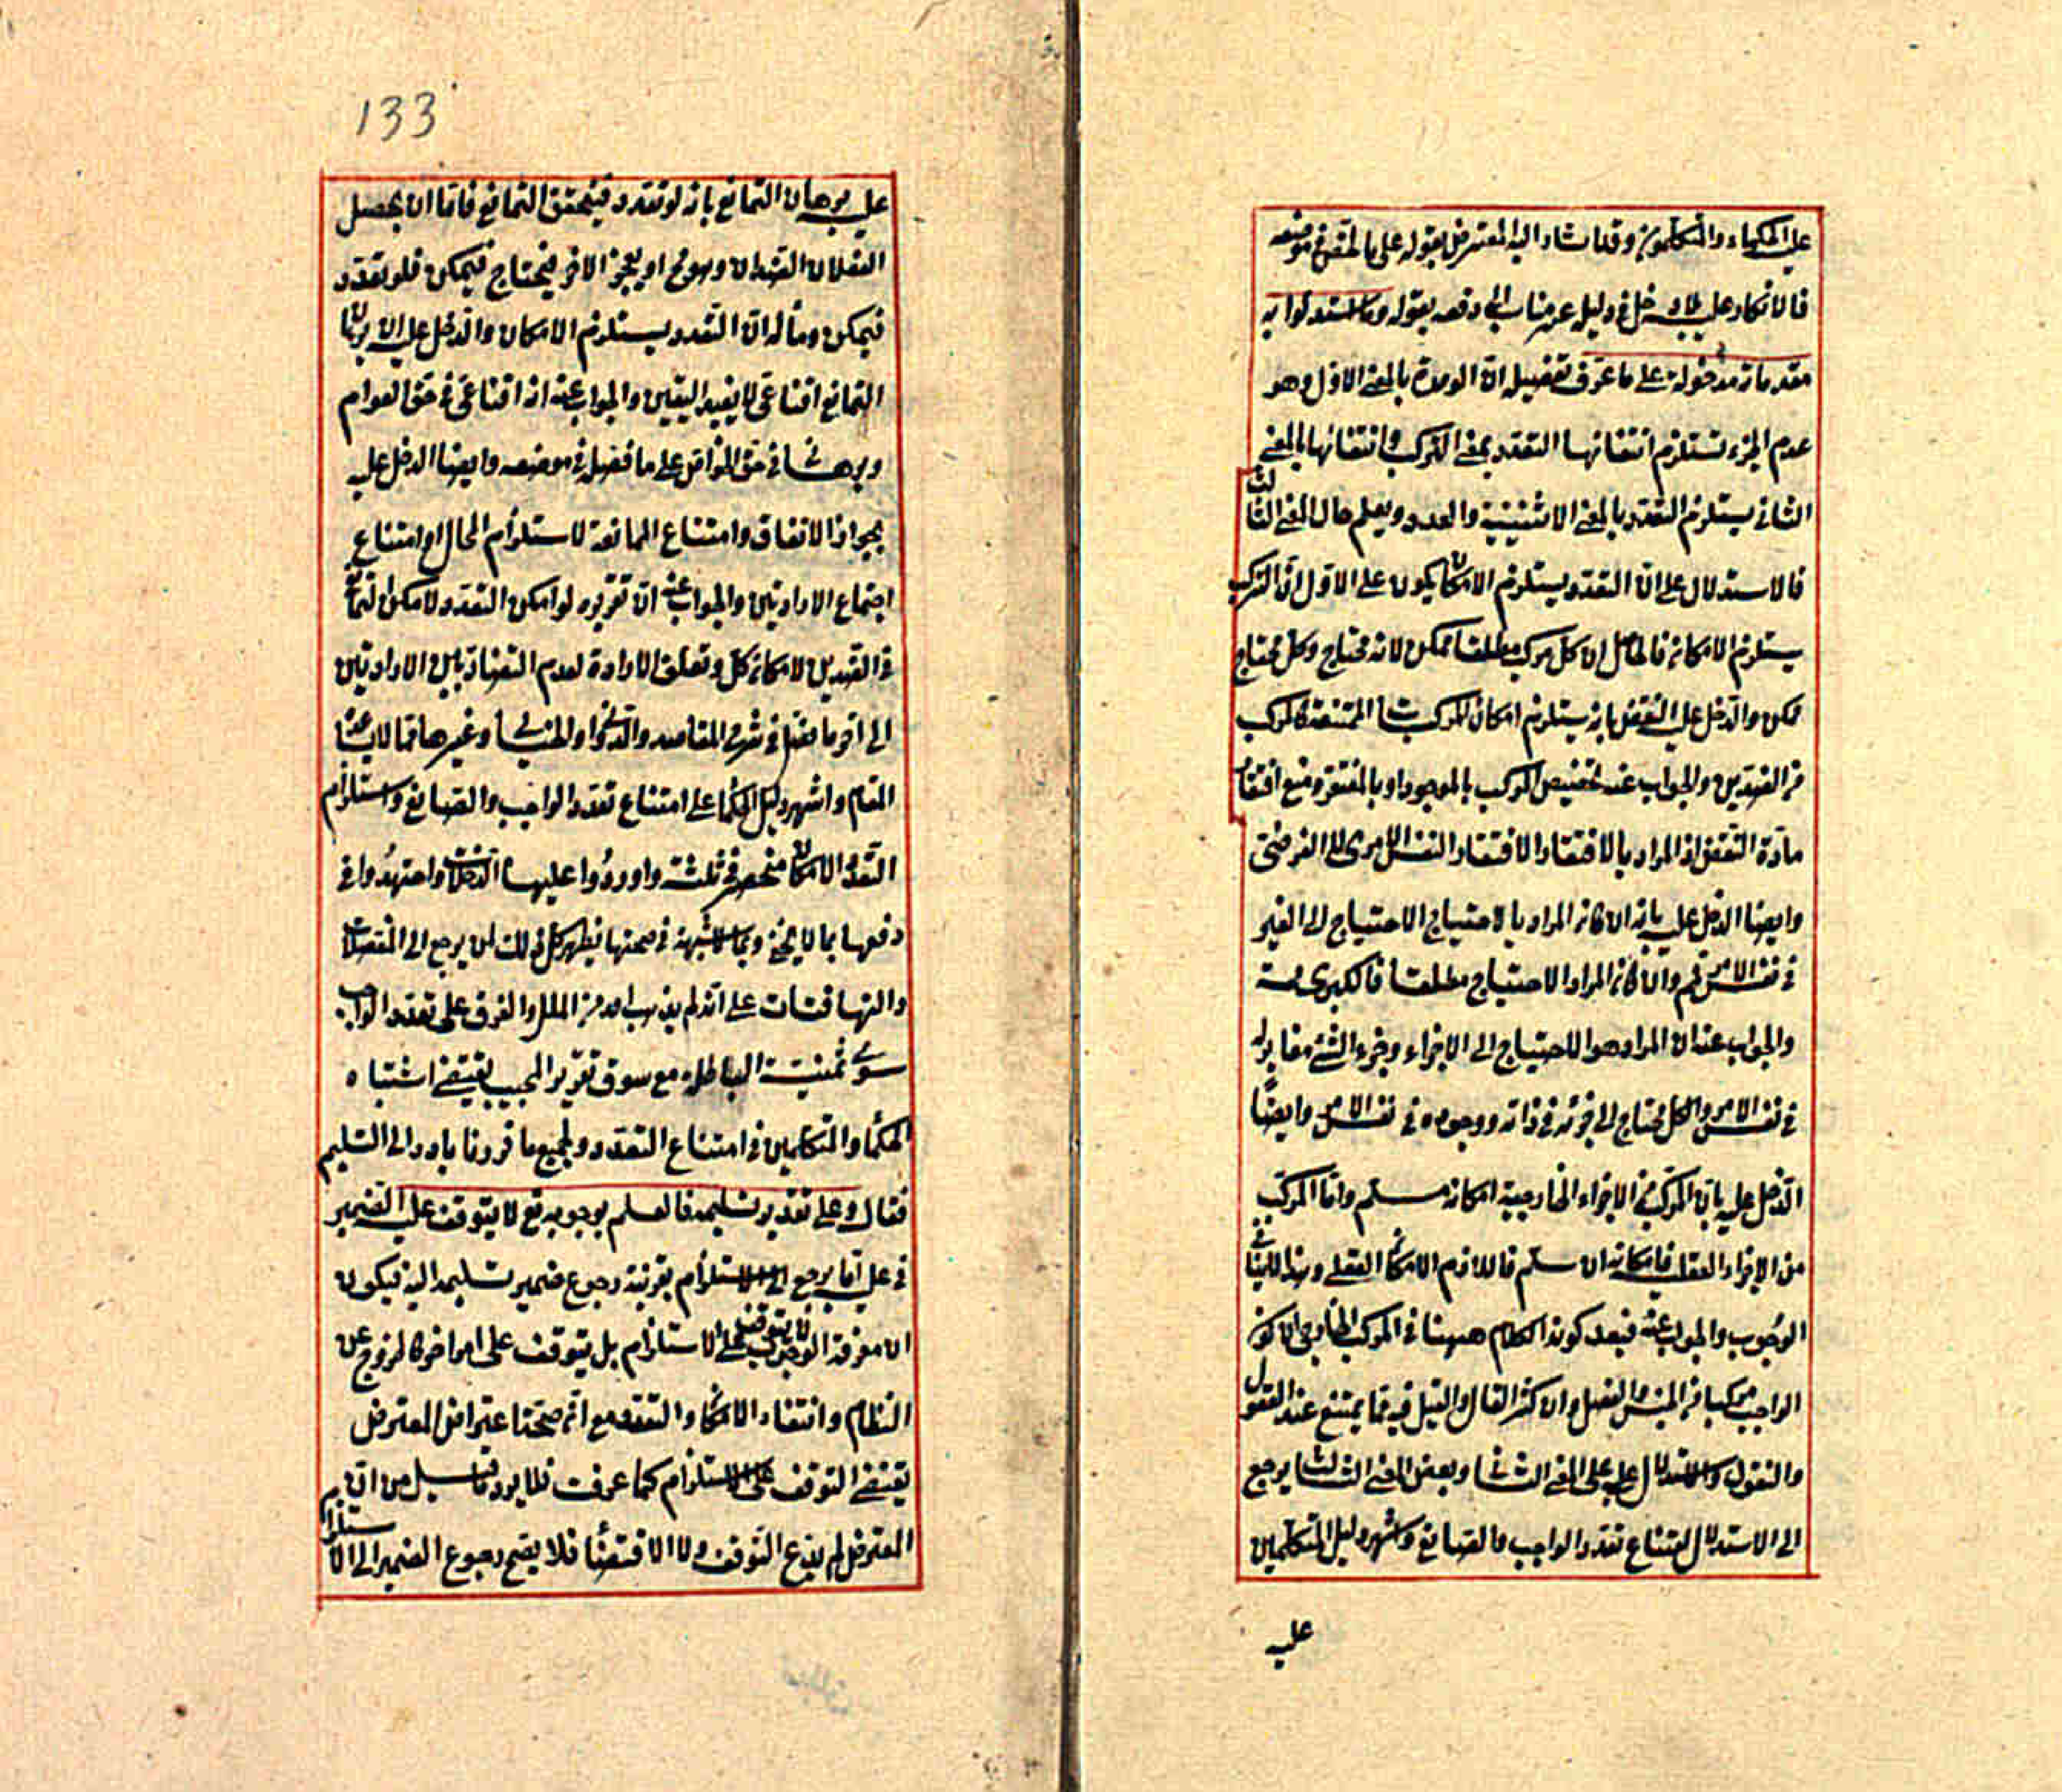 عليه الحكماء والمتكلمون وقد اشار اليه المعترض بقوله على ما حقق في موضعه
فالانكار عليه دخل في دليله عن مناب الى دفعه بقوله وما استدلوا به
مقدماته مدخولة على ما عرف تفصيله ان الوحدة بالمعنى الاول وهو
عدم الجزء تستلزم انتفائها التعدد بمعنى التركب وانتفائها بالمعنى
الثانى يستلزم التعدد بالمعنى الاثنينية والعدد ويعلم حال المعنى الثالث
فالاستدلال على ان التعدد يستلزم الامكان يكون على الاول ان التركب
يستلزم الامكان فالحاصل ان كل مركب مطلقا ممكن لانه محتاج وكل محتاج
ممكن والدخل عليه النقض بانه يستلزم امكان المركبات الممتنعة كالمركب
من الضدين والجواب عنه تخصيص المركب بالموجود او بالمفتقر ومنع افتقار
مادة النقض اذ المراد بالافتقار الافتقار النفس الامرى لا الفرضى
وايضا الدخل عليه بانه ان كان المراد بالاحتياج الاحتياج الى الغير
في نفس الامر تم وان كان المراد الاحتياج مطلقا فالكبرى
والجواب عنه ان المراد هو الاحتياج الى الاجزاء وجزء الشئ مغاير له
في نفس الامر والكل محتاج الى جزئه في ذاته ووجوده في نفس الامر وايضا
الدخل عليه بان المركب من الاجزاء الخارجية امكانه مسلم واما المركب
من الاجزاء العقلية فامكانه لا نسلم فاللازم الامكان العقلى وهذا لا ينافى
الوجوب والجواب عنه فبعد كون الكلام ههنا في المركب الخارجى لا كون
الواجب مركبا من الجنس والفصل وان كثر القال والقيل فيه مما يمتنع عند العقول
والنقول والاستدلال عليه على المعنى الثانى وبعض المعنى الثالث يرجع
الى الاستدلال لامتناع تعدد الواجب والصانع واشهر دليل المتكلمين
عليه
133
عليه برهان التمانع بانه لو تعدد فيتحقق التمانع فاما ان يحصل
الفعلان الضدان وهو مح او يعجز الاخر فيحتاج فيمكن فلو تعدد
فيمكن ومأله ان التعدد يستلزم الامكان والدخل عليه ان برهان
التمانع اقناعى لا يفيد اليقين والجواب عنه انه اقناعى في حق العوام
وبرهانى في حق الخواص على ما فصل في موضعه وايضا الدخل عليه
بجواز الاتفاق وامتناع الممانعة لاستلزام المحال او امتناع
اجتماع الارادتين والجواب عنه ان تقريره لو امكن التعدد لامكن التمانع
في الضدين لامكان كل وتعلق الارادة لعدم التضاد بين الارادتين
الى اخر ما فصل في شرح المقاصد والدواني والخيالى وغيرها مما لا يناسب
المقام واشهر دليل الحكماء على امتناع تعدد الواجب والصانع واستلزام
التعدد الامكان منحصر في ثلثة واوردوا عليها الدخلات واجتهدوا في
دفعها بما لا يخفى وبما لا شبهة في صحتها فيظهر كل ذلك لمن يرجع الى المفصلات
والتهافتات على انه لم يذهب احد من الملل والفرق على تعدد الواجب
سوى ثنية الباطلة مع سوق تقرير المجيب يقتضى اشتباه
الحكماء والمتكلمين في امتناع التعدد ولجميع ما قررنا بادر الى التسليم
فقال وعلى تقدير تسليمه فالعلم بوجوبه تع لا يتوقف عليه الضمير
في عليه اما يرجع الى الاستلزام بقرينة رجوع ضمير تسليمه اليه فيكون
ان معرفة الوجوب لا يتوقف على الاستلزام بل يتوقف على امر اخر كالخروج عن
النظام وانتفاء الامكان والتعدد مع ان صحة اعتراض المعترض
يقتضى التوقف على الاستلزام كما عرفت فلا يرد ما قيل من ان
المعترض لم يدع التوقف ولا الاقتضاء فلا يصح رجوع الضمير الى الاستلزام